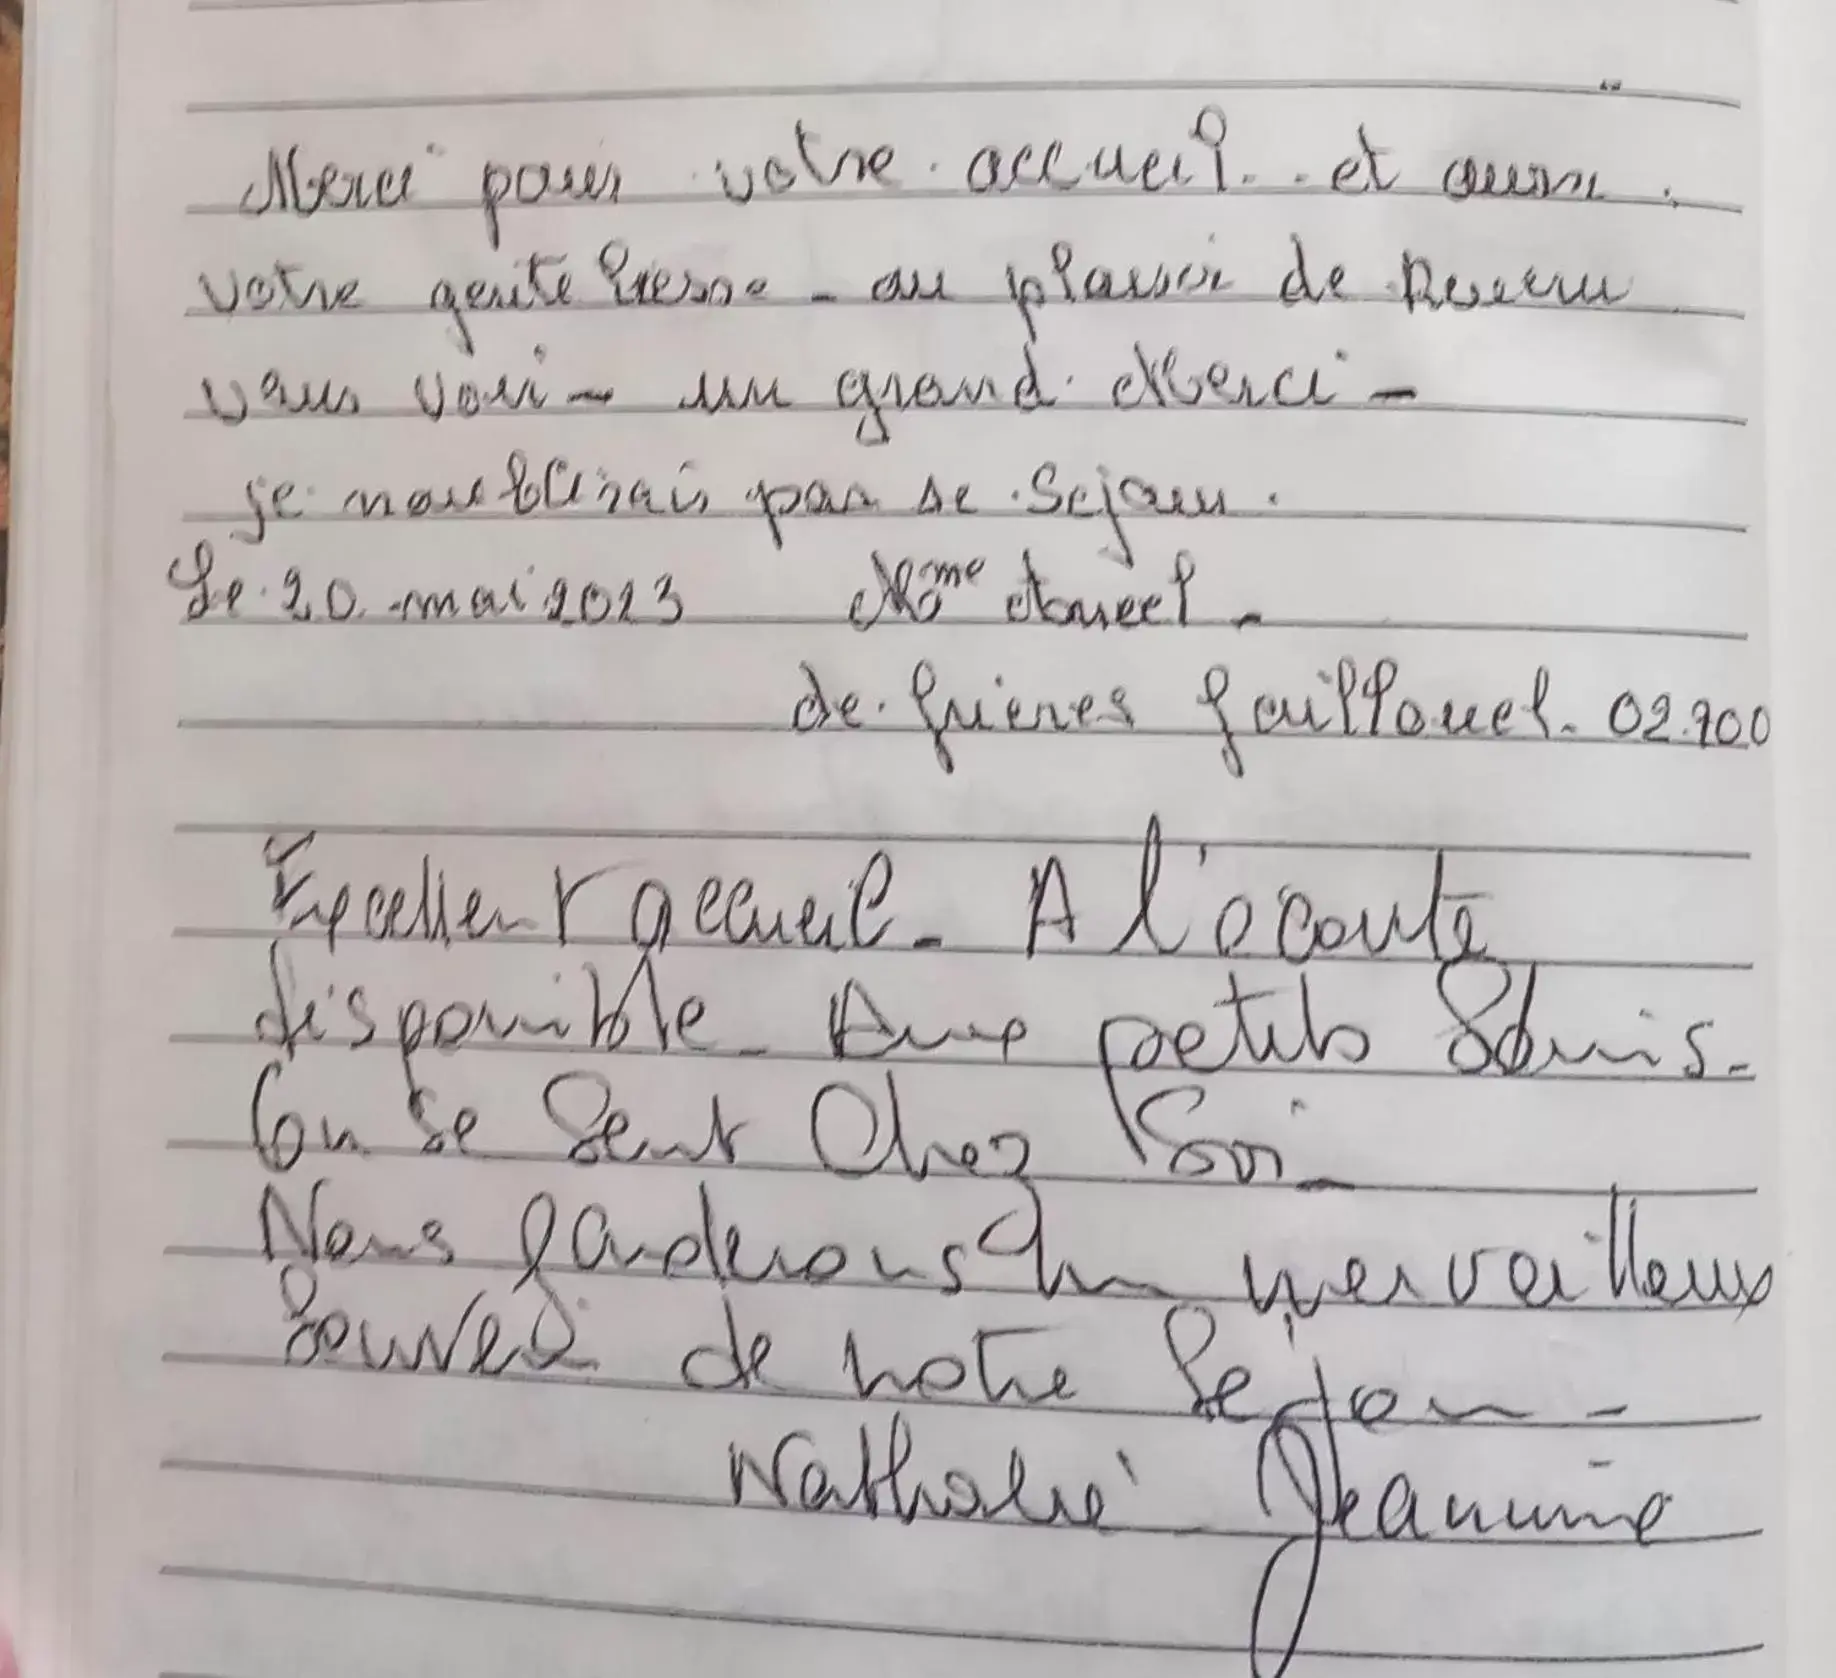 Merci pour votre accueil.. et aussi.
votre genteliesse - au plaisir de
vous voir - un grand Merci -
je noublirais pas se sejour.
Le 20 mai 2023 Mme
de frières faillouel. 02.700
Excellent accueil - A l'écoute
disponible - Aux petits Soins -
on se Sent Chez Soi -
Nous garderons Un merveilleux
de notre Sejour -
Nathalie Jeannine